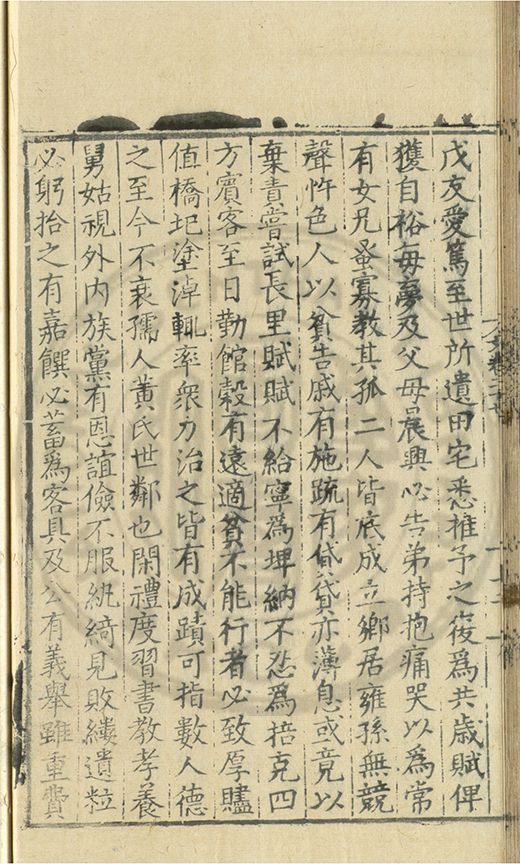 戊友愛篤至世所遺田宅悉推予之復爲共歳賦俾
獲自裕毎夢及父母晨興必告弟持抱痛哭以爲常
有女兄蚤寡教其孤二人皆底成立鄉居雍孫無競
聲忤色人以貧告戚有施疏有貸貸亦薄息或竟以
棄責嘗試長里賦賦不給寧爲埤納不忍爲掊克四
方賓客至日勤館穀有遠適貧不能行者必致厚贐
值橋圯塗淖輒率衆力治之皆有成蹟可指數人德
之至今不衰孺人黃氏世鄰也閑禮度習書教孝養
舅姑視外内族黨有恩誼儉不服紈綺見敗縷遺粒
必躬拾之有嘉饌必蓄爲客具及公有義舉雖重費